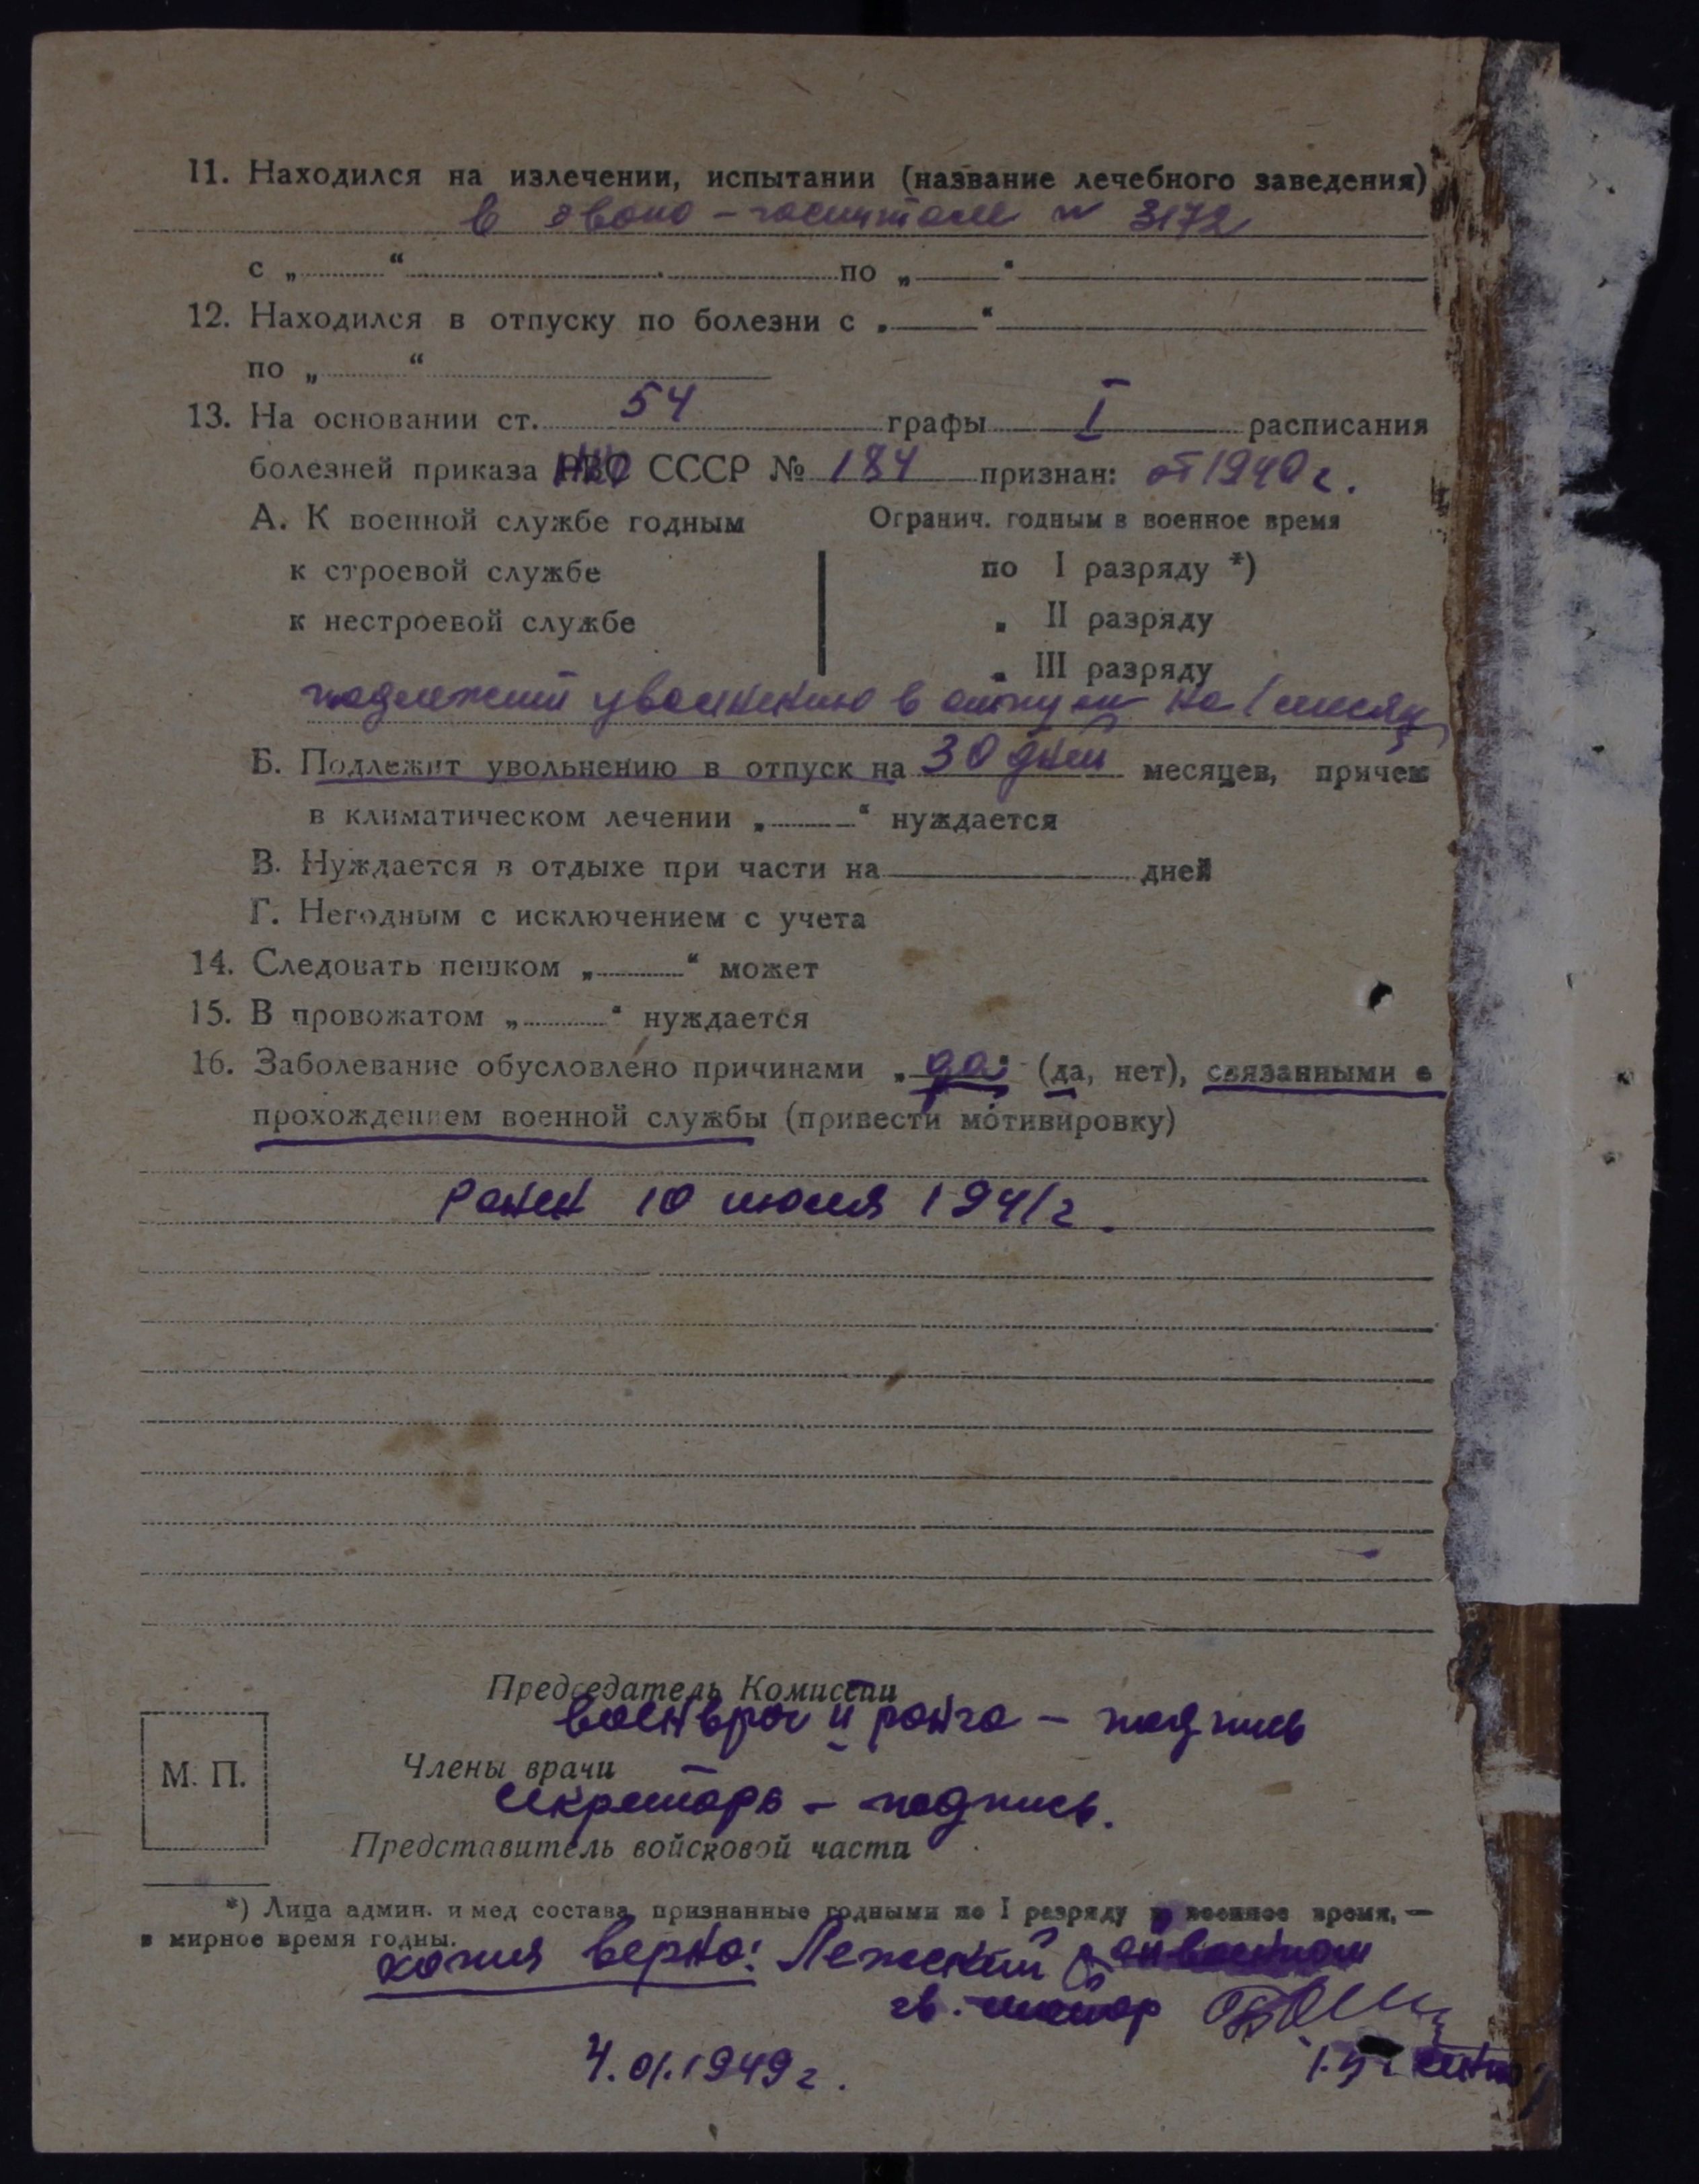 11. Находился на излечении, испытании (название лечебного заведения)
в эвако-госпитале № 3172
с „ “ по „ “
12. Находился в отпуску по болезни с „ “
по „ “
13. На основании ст. 54 графы I расписания
болезней приказа НКО СССР № 184 признан: от 1940 г.
А. К военной службе годным
Огранич. годным в военное время
к строевой службе
по I разряду *)
к нестроевой службе
„ II разряду
„ III разряду
подлежит увольнению в отпуск на 1 месяц
Б. Подлежит увольнению в отпуск на 30 дней месяцев, причем
в климатическом лечении „ “ нуждается
В. Нуждается в отдыхе при части на дней
Г. Негодным с исключением с учета
14. Следовать пешком „ “ может
15. В провожатом „ “ нуждается
16. Заболевание обусловлено причинами „да“ (да, нет), связанными с
прохождением военной службы (привести мотивировку)
Ранен 10 июля 1941 г.
Председатель Комиссии
военврач II ранга – подпись
Члены врачи
секретарь – подпись.
М. П.
Представитель войсковой части
*) Лица админ. и мед состава, признанные годными по I разряду в военное время, —
в мирное время годны.
копия верна:
гв. майор
4.01.1949 г.